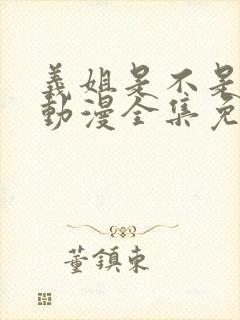 義姐是不是
動漫全集免
董鎮東